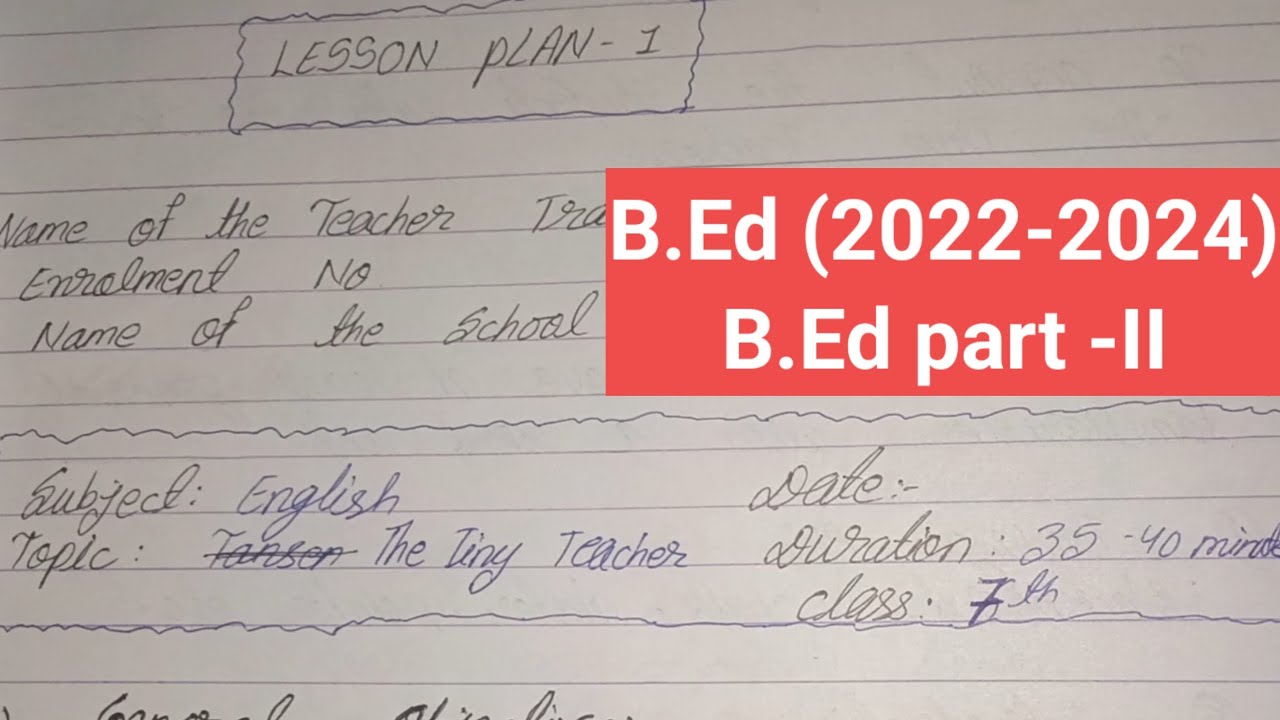 LESSON PLAN - 1
Name of the Teacher Tra
B.Ed (2022-2024)
Enrolment No
Name of the School
B.Ed part -II
Subject: English
Date:-
Topic: Tansen The Tiny Teacher
Duration: 35 -40 minute
Class: 7th
General Objectives